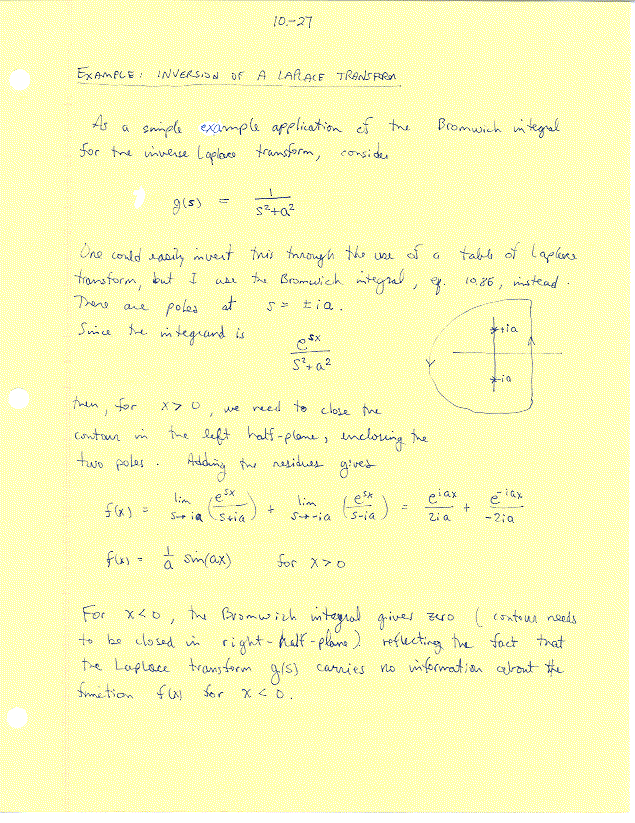 10.-27
EXAMPLE: INVERSION OF A LAPLACE TRANSFORM
As a simple example application of the Bromwich integral
for the inverse Laplace transform, consider
g(s) = 1/(s²+a²)
One could easily invert this through the use of a table of Laplace
transform, but I use the Bromwich integral, eq. 10.86, instead.
There are poles at s = ±ia.
Since the integrand is
e^{sx}/(s²+a²)
+ia
-ia
then, for x>0, we need to close the
contour in the left half-plane, enclosing the
two poles. Adding the residues gives
f(x) = lim s→ia (e^{sx}/(s+ia)) + lim s→-ia (e^{sx}/(s-ia)) = e^{iax}/2ia + e^{-iax}/-2ia
f(x) = 1/a sin(ax) for x>0
For x<0, the Bromwich integral gives zero (contour needs
to be closed in right-half-plane) reflecting the fact that
the Laplace transform g(s) carries no information about the
function f(x) for x<0.